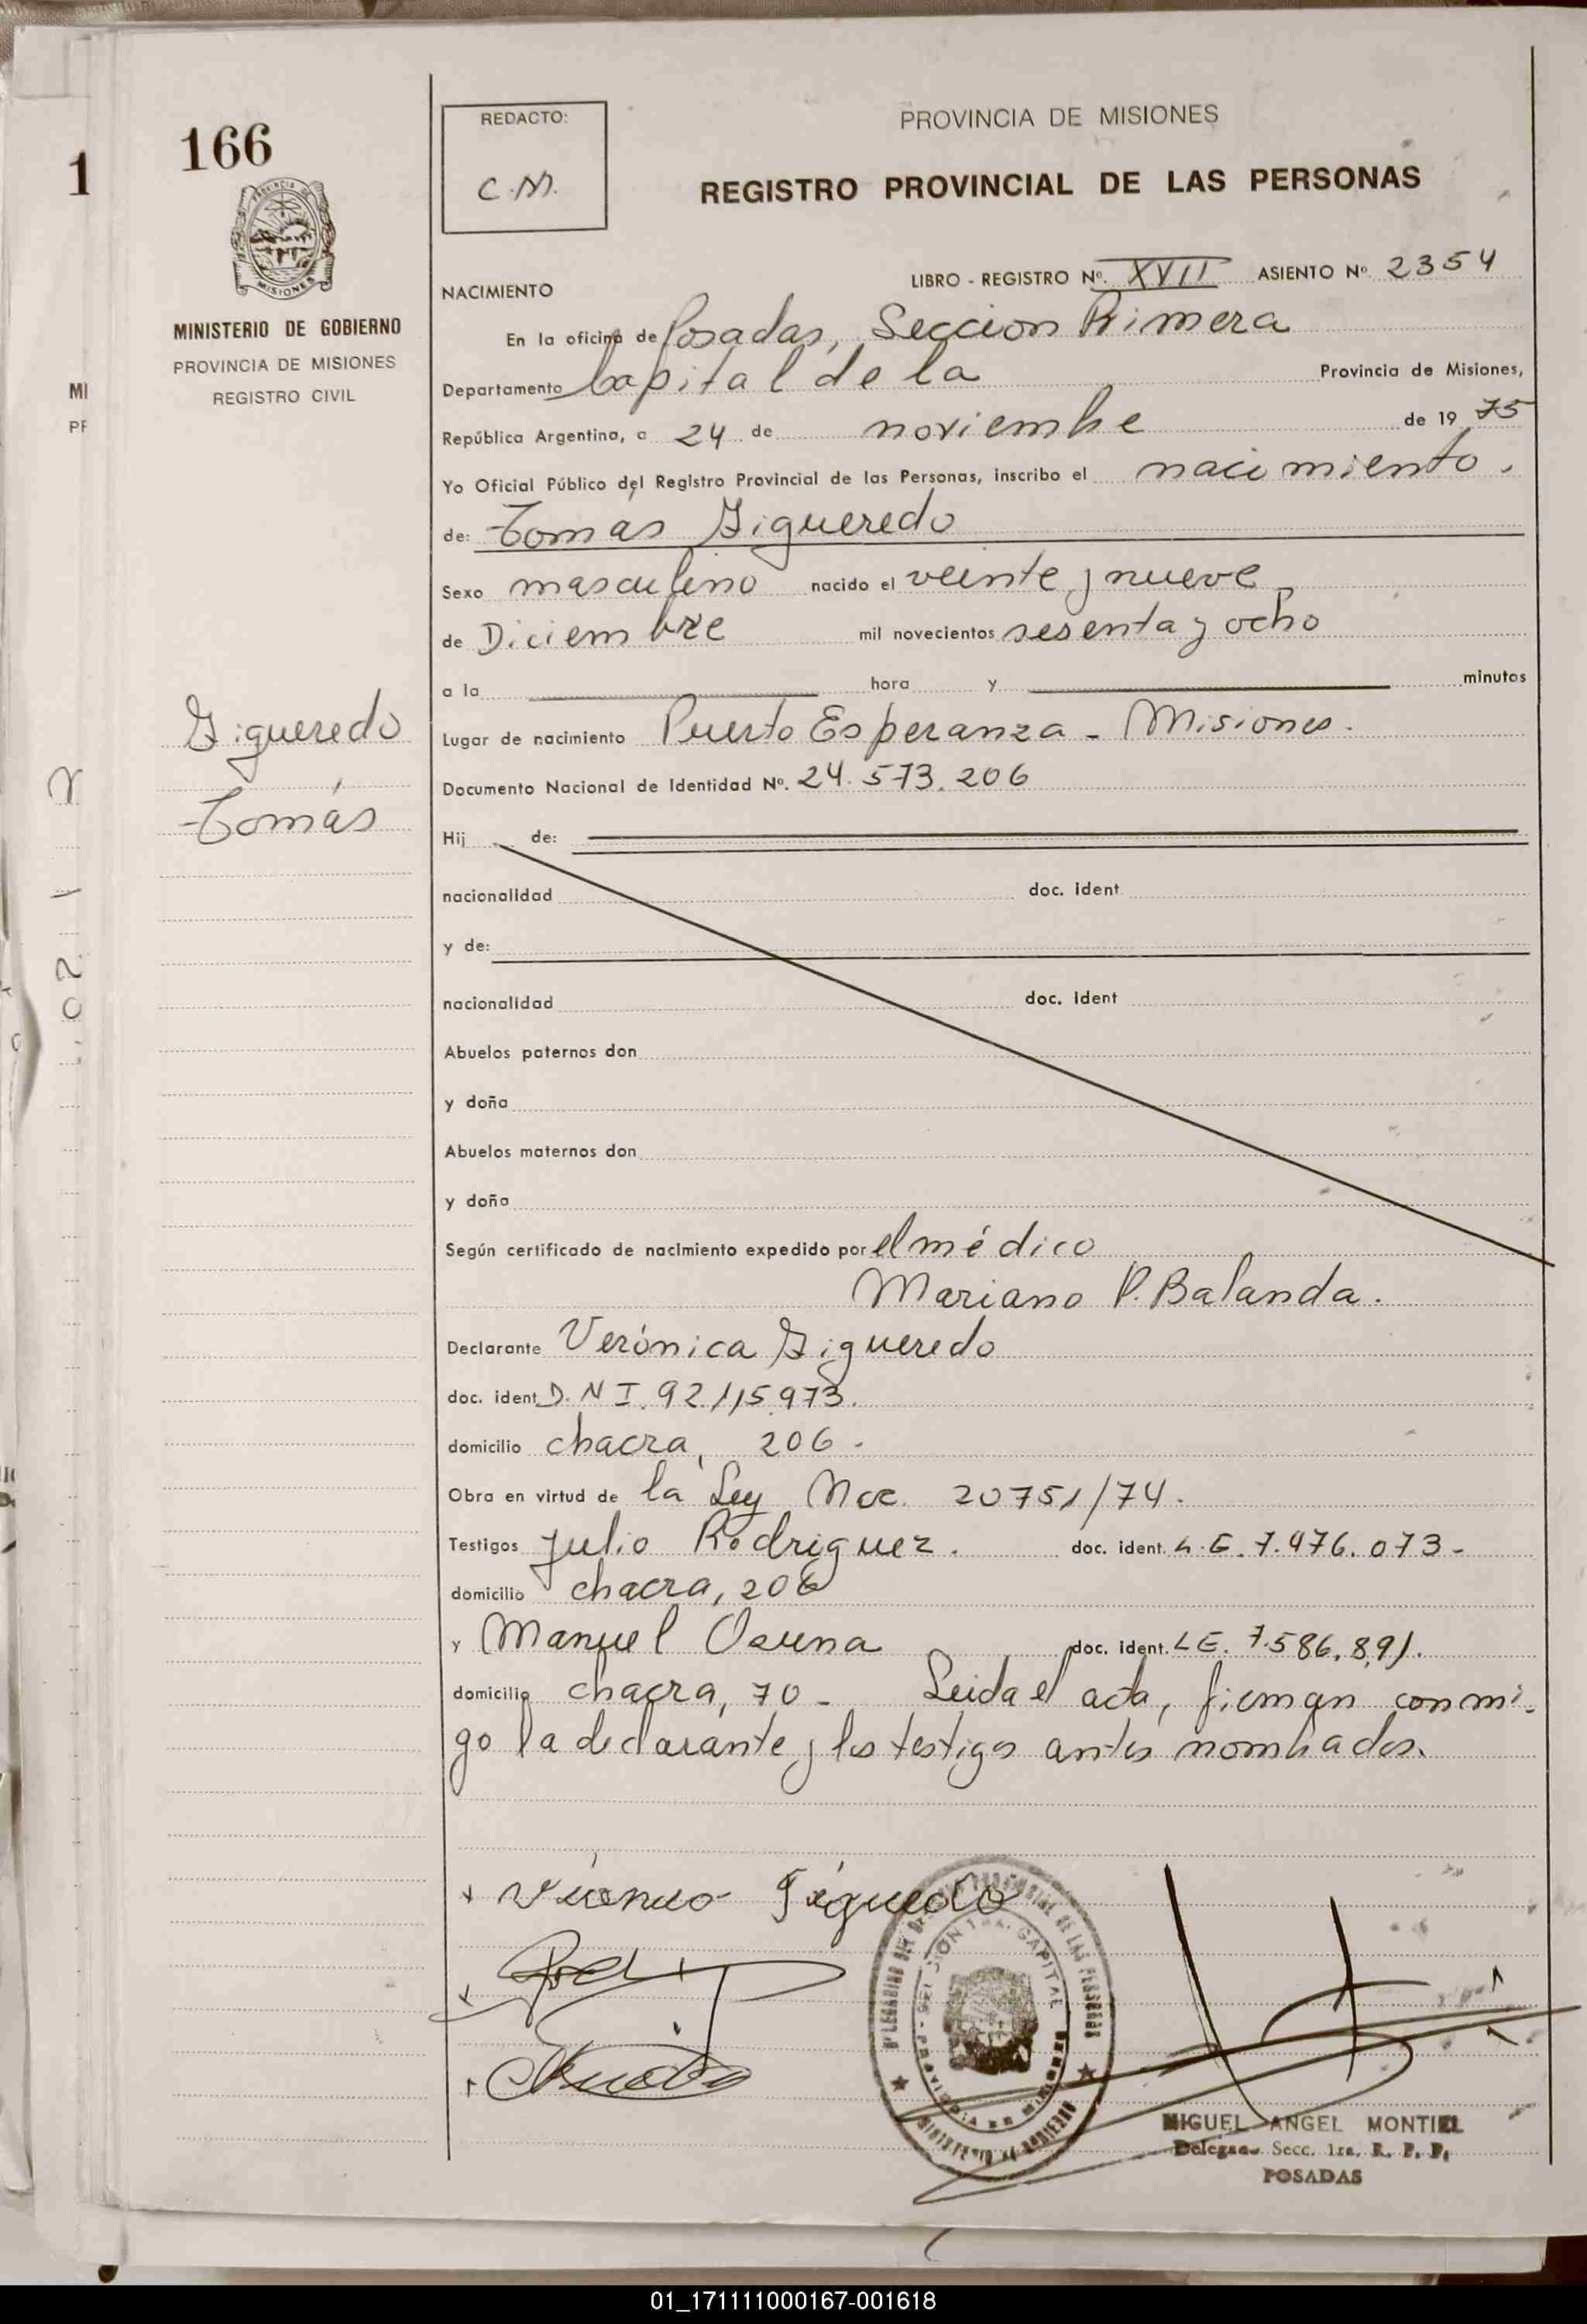 166
1
REDACTO:
C.M.
PROVINCIA DE MISIONES
REGISTRO PROVINCIAL DE LAS PERSONAS
MISIONES
MINISTERIO DE GOBIERNO
PROVINCIA DE MISIONES
REGISTRO CIVIL
MI
PF
NACIMIENTO
LIBRO - REGISTRO Nº. XVII ASIENTO Nº. 2354
En la oficina de Posadas, Seccion Primera
Departamento Capital de la Provincia de Misiones,
República Argentina, a 24 de noviembre de 19 75
Yo Oficial Público del Registro Provincial de las Personas, inscribo el nacimiento.
de: Tomás Figueredo
Sexo masculino nacido el veinte y nueve
de Diciembre mil novecientos sesenta y ocho
a la hora y minutos
Figueredo
Tomás
Lugar de nacimiento Puerto Esperanza - Misiones.
Documento Nacional de Identidad Nº. 24.573.206
Hij de:
nacionalidad doc. ident
y de:
nacionalidad doc. ident
Abuelos paternos don
y doña
Abuelos maternos don
y doña
Según certificado de nacimiento expedido por el médico
Mariano P. Balanda.
Declarante Verónica Figueredo
doc. ident D.N I. 92.115.973.
domicilio chacra, 206.
Obra en virtud de la Ley Nac. 20751/74.
Testigos Julio Rodriguez. doc. ident. L.E. 7.476.073-
domicilio chacra, 206
y Manuel Osuna doc. ident. LE. 7.586.891.
domicilio chacra, 70 - Leida el acta, firman conmi-
go la declarante y los testigos antes nombrados.
MIGUEL ANGEL MONTIEL
Delegado Secc. 1ra. R. P. P.
POSADAS
01_171111000167-001618